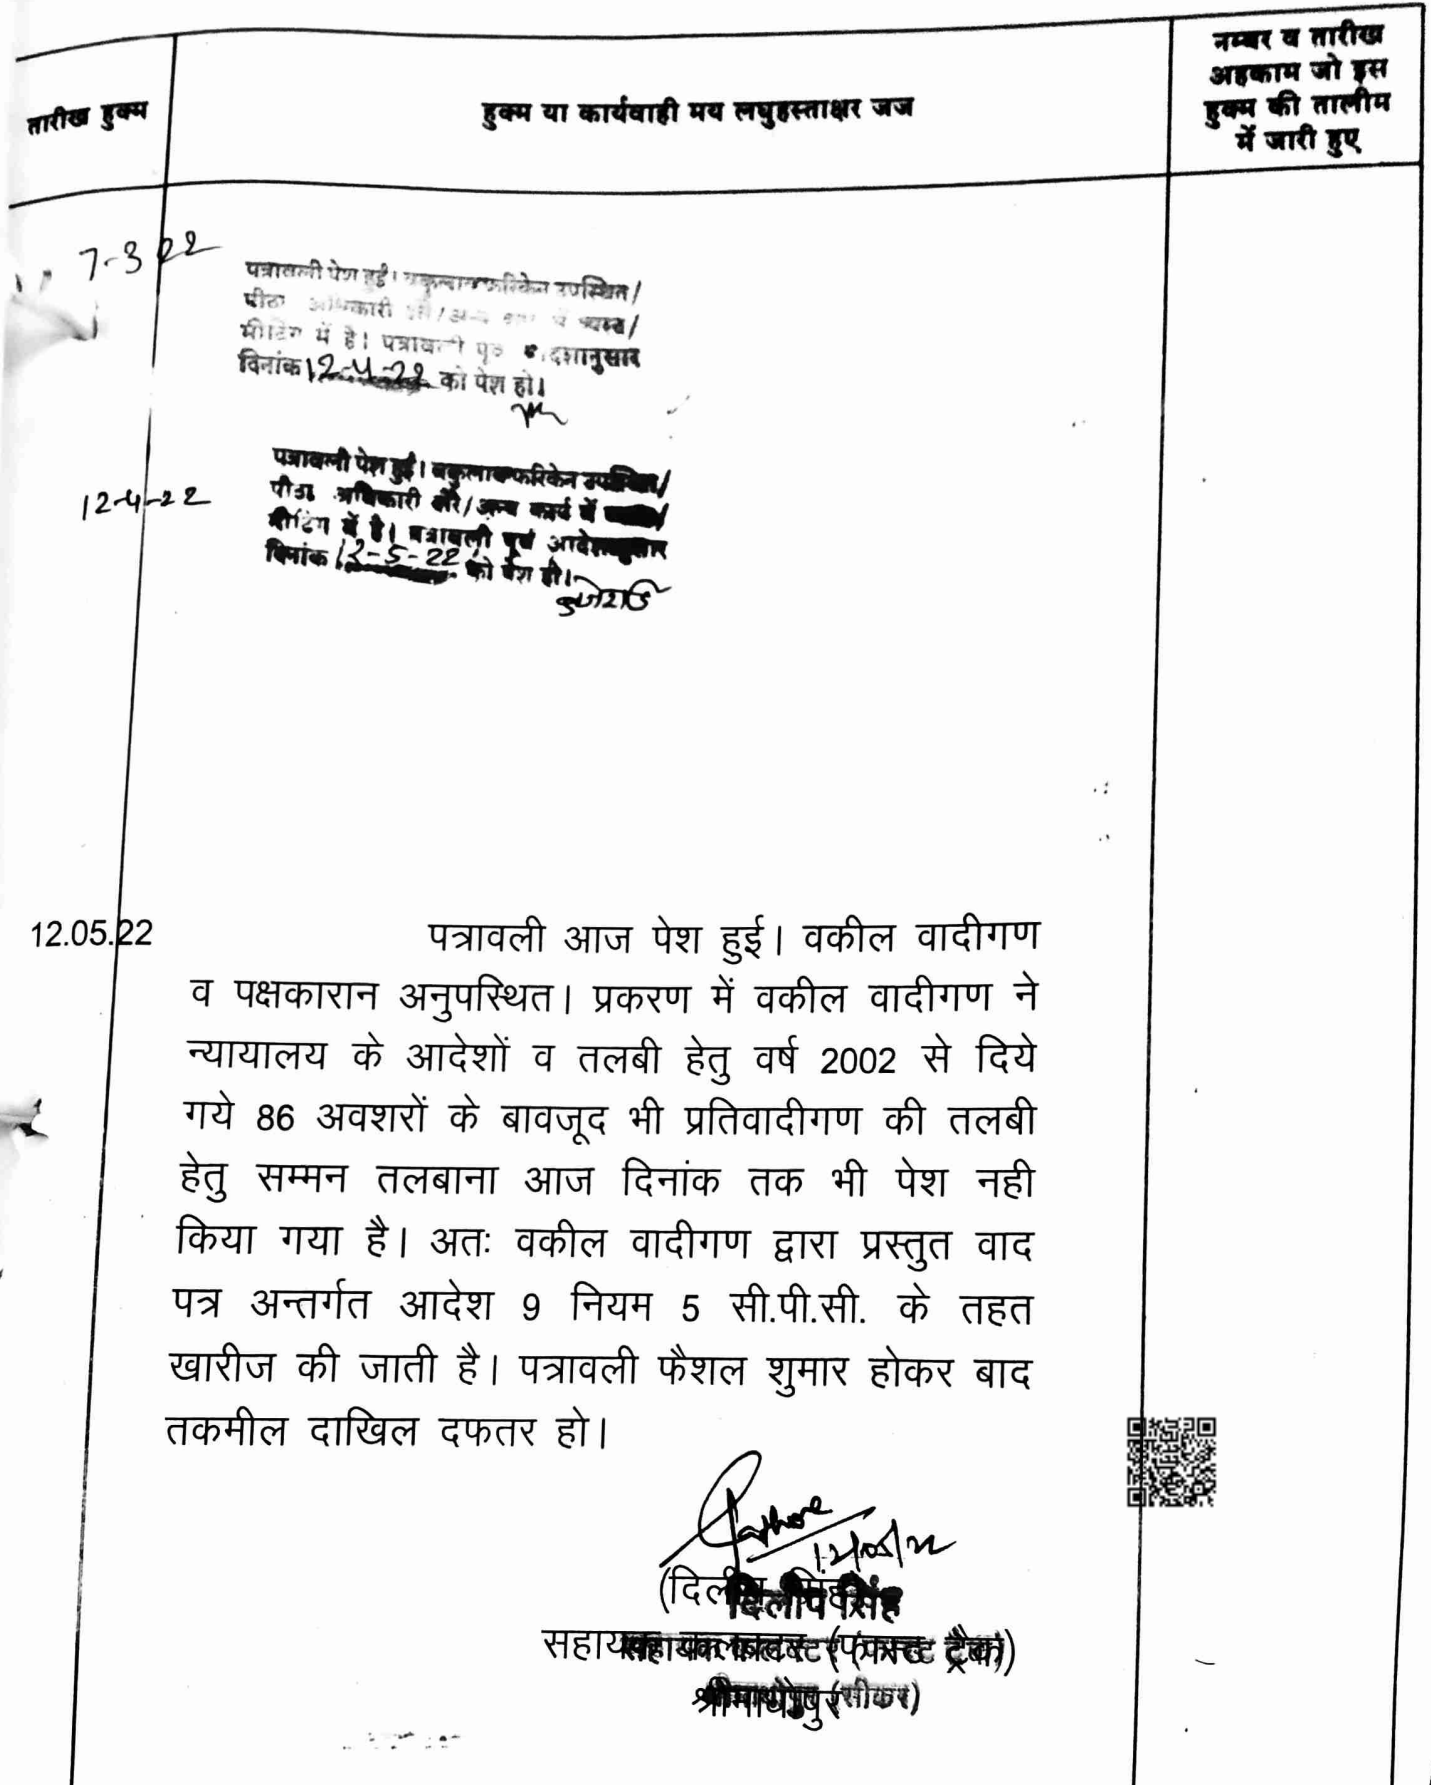 तारीख हुक्म
हुक्म या कार्यवाही मय लघुहस्ताक्षर जज
नम्बर व तारीख
अहकाम जो इस
हुक्म की तालीम
में जारी हुए
7-3-22
पत्रावली पेश हुई। वकुलाय फरिकेन उपस्थित/
पीठा अधिकारी
मीटिंग में है। पत्रावली
दिनांक 12-4-22 को पेश हो।
12-4-22
पत्रावली पेश हुई। वकुलाय फरिकेन उपस्थित/
पीठा अधिकारी दौरे/अन्य कार्य में
मीटिंग में है। पत्रावली पूर्व आदेशानुसार
दिनांक 12-5-22 को पेश हो।
12.05.22
पत्रावली आज पेश हुई। वकील वादीगण
व पक्षकारान अनुपस्थित। प्रकरण में वकील वादीगण ने
न्यायालय के आदेशों व तलबी हेतु वर्ष 2002 से दिये
गये 86 अवशरों के बावजूद भी प्रतिवादीगण की तलबी
हेतु सम्मन तलबाना आज दिनांक तक भी पेश नही
किया गया है। अतः वकील वादीगण द्वारा प्रस्तुत वाद
पत्र अन्तर्गत आदेश 9 नियम 5 सी.पी.सी. के तहत
खारीज की जाती है। पत्रावली फैशल शुमार होकर बाद
तकमील दाखिल दफतर हो।
12/05/22
दिलीप सिंह
सहायक कलक्टर (फास्ट ट्रैक)
श्रीमाधोपुर (सीकर)